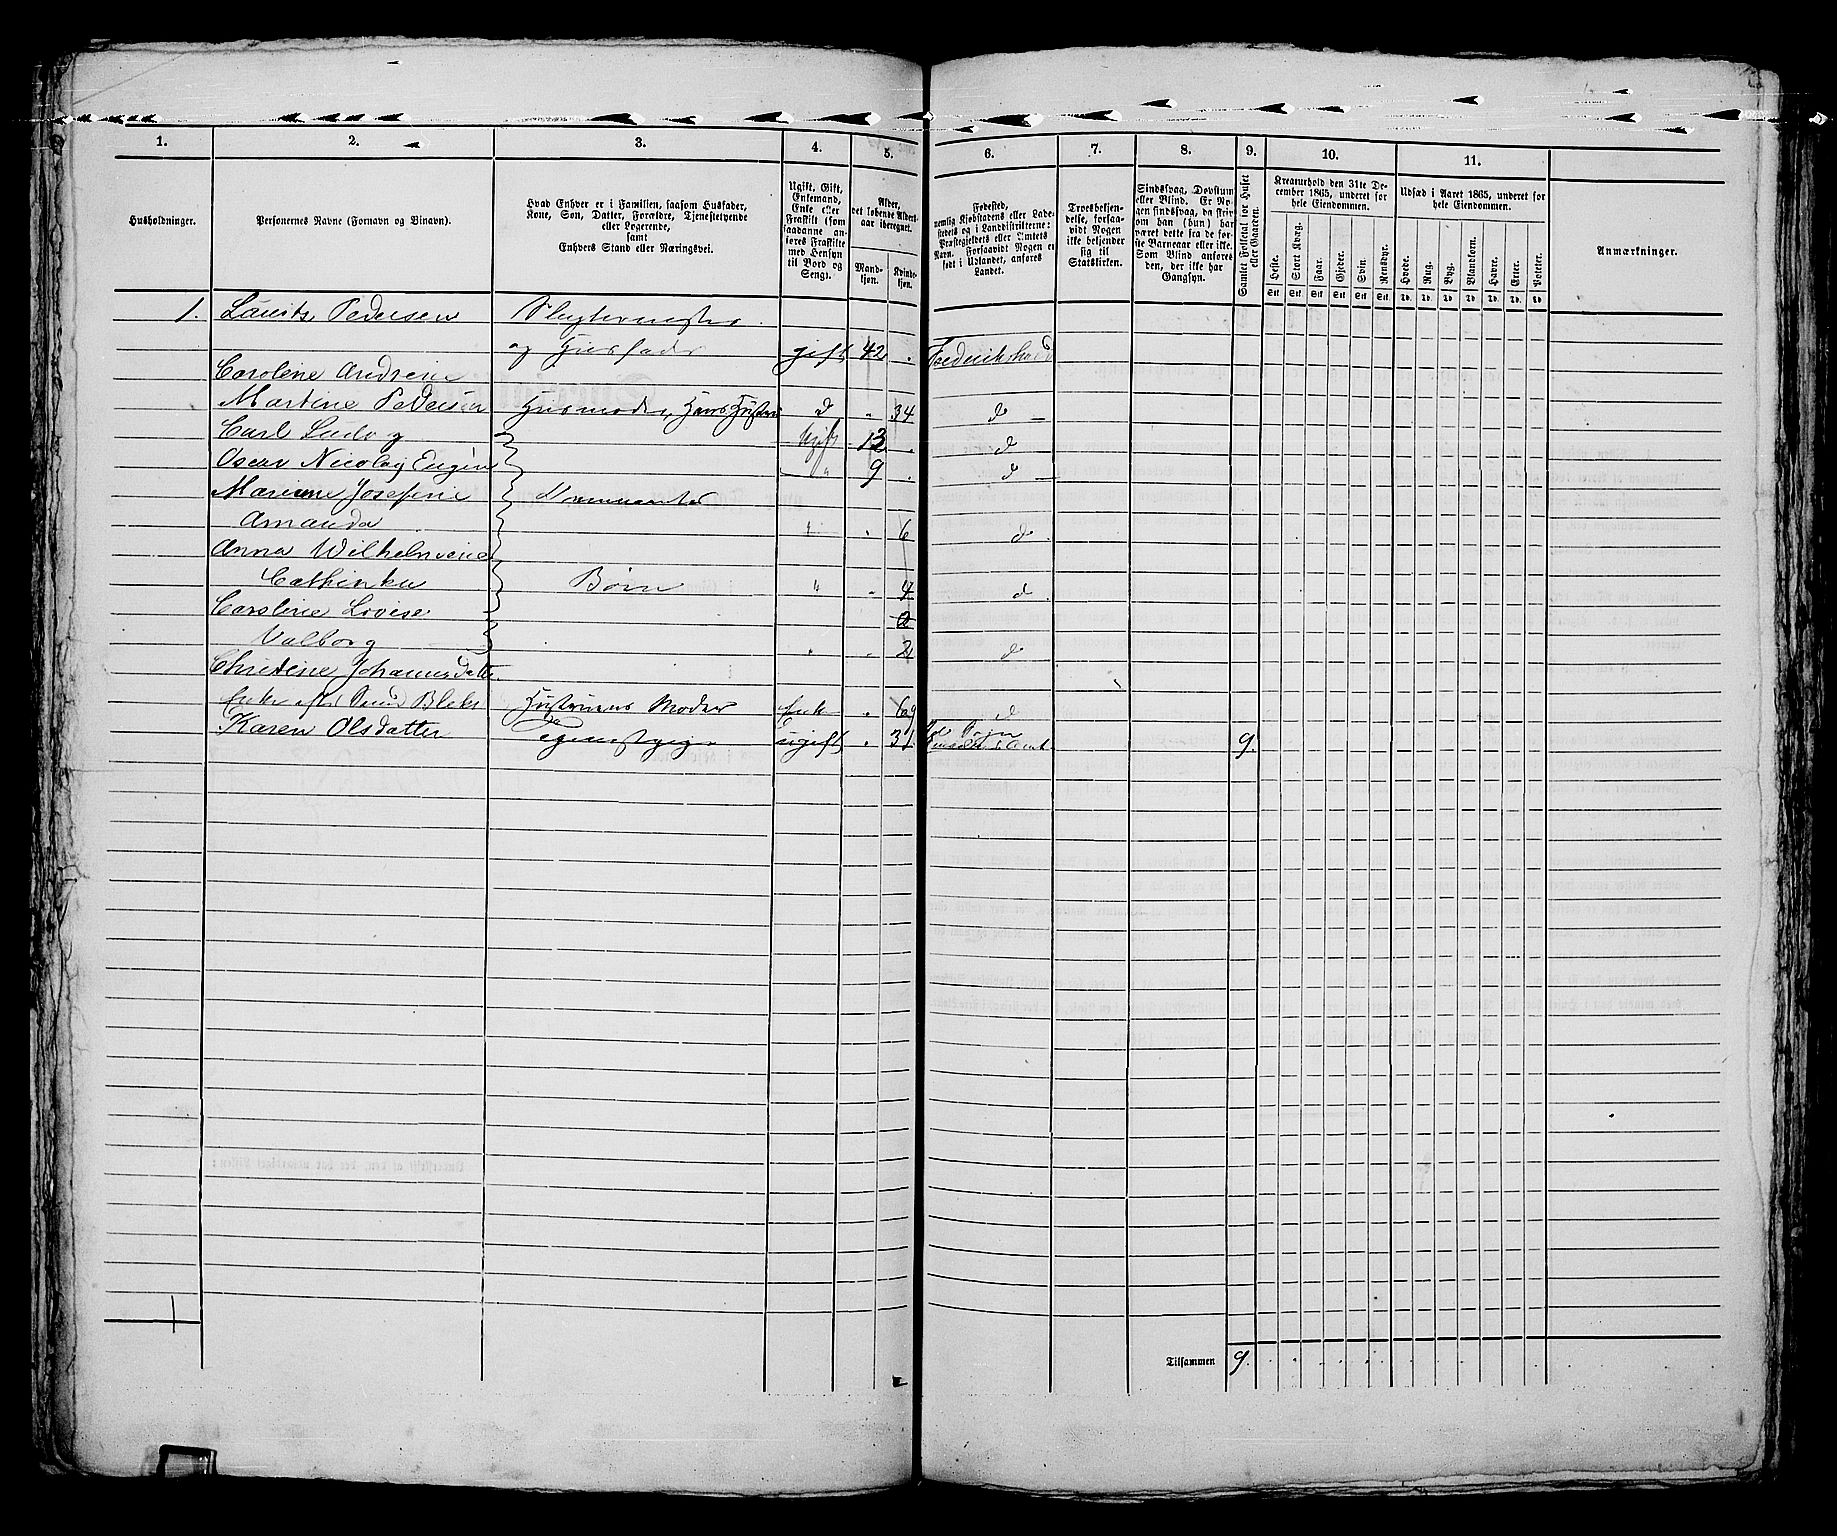 1. 2. 3. 4. 5. 6. 7. 8. 9. 10. 11.
Husholdninger.
Personernes Navne (Fornavn og Binavn).
Hvad Enhver er i Familien, saasom Husfader,
Kone, Søn, Datter, Forældre, Tjenestetyende
eller Logerende,
samt
Enhvers Stand eller Næringsvei.
Ugift, Gift,
Enkemand,
Enke eller
Fraskilt (som
saadanne an-
føres Fraskilte
med Hensyn
til Bord og
Seng).
Alder,
det løbende Alders-
aar iberegnet.
Mand-
kjøn.
Kvinde-
kjøn.
Fødested,
nemlig Kjøbstadens eller Lade-
stedets og i Landdistrikterne:
Præstegjeldets eller Amtets
Navn. Forsaavidt Nogen er
født i Udlandet, anføres
Landet.
Troesbekjen-
delse, forsaa-
vidt Nogen
ikke bekjender
sig til
Statskirken.
Sindssvag, Døvstum
eller Blind. Er No-
gen sindssvag, da skriv
om han (hun) har
været dette fra de før-
ste Barneaar eller ikke.
Som Blind anføres
den, der ikke har
Gangsyn.
Samlet Folketal for Huset
eller Gaarden.
Kreaturhold den 31te De-
cember 1865, underet for
hele Eiendommen.
Heste. Stort Kvæg. Faar. Gjeder. Svin. Rensdyr.
Stk. Stk. Stk. Stk. Stk. Stk.
Udsæd i Aaret 1865, underet for
hele Eiendommen.
Hvede. Rug. Byg. Blandkorn. Havre. Erter. Poteter.
Td. Td. Td. Td. Td. Td. Td.
Anmærkninger.
1. Laurits Pedersen Slagtermester
og Huusfader gift 42 . Frederikshald
Caroline Andrine
Martine Pedersen Husmoder, Hans Hustru d " 34 d
Carl Ludvig Ugift 13 . d
Oscar Nicolay Eugen " 9 . d
Marienne Josefine
Amanda " " 6 d
Anna Wilhelmine
Cathinka Børn " " 4 d
Caroline Lovise 2
Valborg " " 2 d
Christine Johannesdatter
Enke efter Blek Hustruens Moder Enke " 69 d
Karen Olsdatter ugift " 31 9.
1
Tilsammen 9.